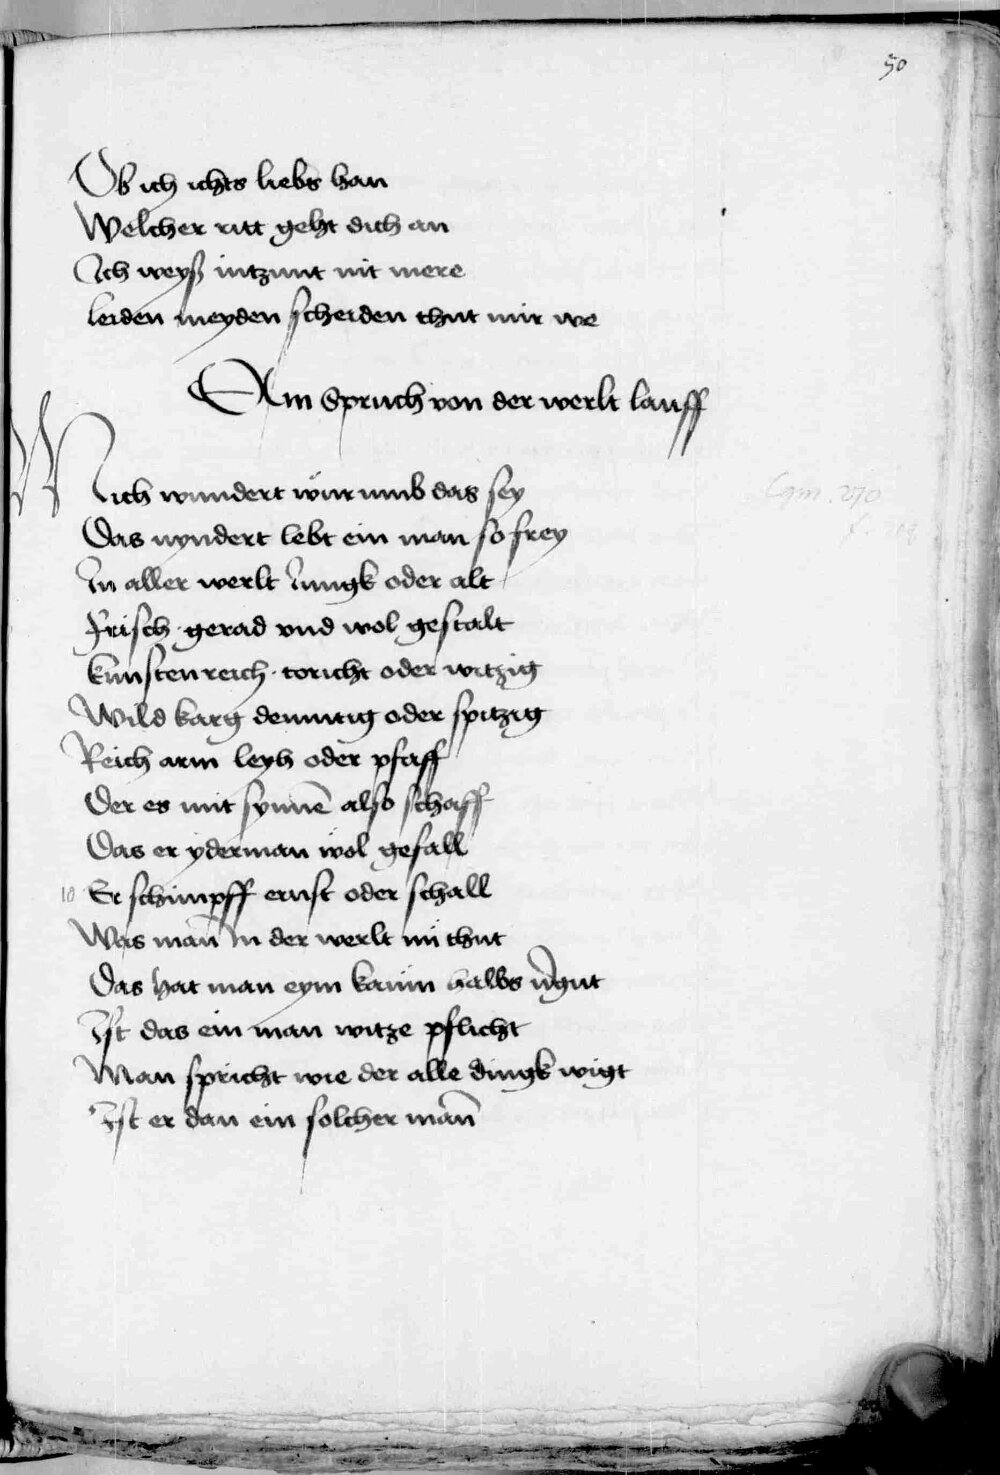 50
Ob ich ichts liebs han
Welcher ritt geht dich an
Ich weyß intzunt nit mere
leiden meyden scheiden thut mir we
Ain Spruch von der werlt lauff
Mich wundert wůrumb das sey
Das nyndert lebt ein man so frey
In aller werlt Jungk oder alt
Frisch · gerad vnd wol gestalt
kunstenreich · toricht oder witzig
Wild karg demutig oder spitzig
Reich arm leyh oder pfaff
Der es mit synnē also schaff
Das er yderman wol gefall
10 Er schimpff ernst oder schall
Was man̄ In der werlt nü thut
Das hat man eym kaum halbs
Ist das ein man witze pflicht
Man spricht wie der alle dingk wigt
Ist er dan ein solcher man̄
Cgm. 270